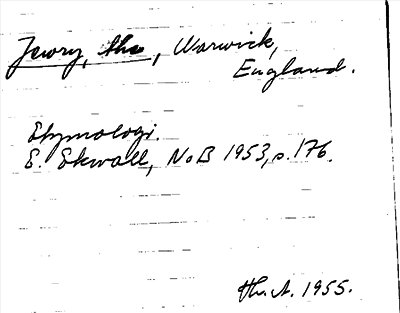 Jewry, the, Warwick,
England.
Etymologi.
E. Ekwall, NoB 1953, s. 176.
Th. A. 1955.